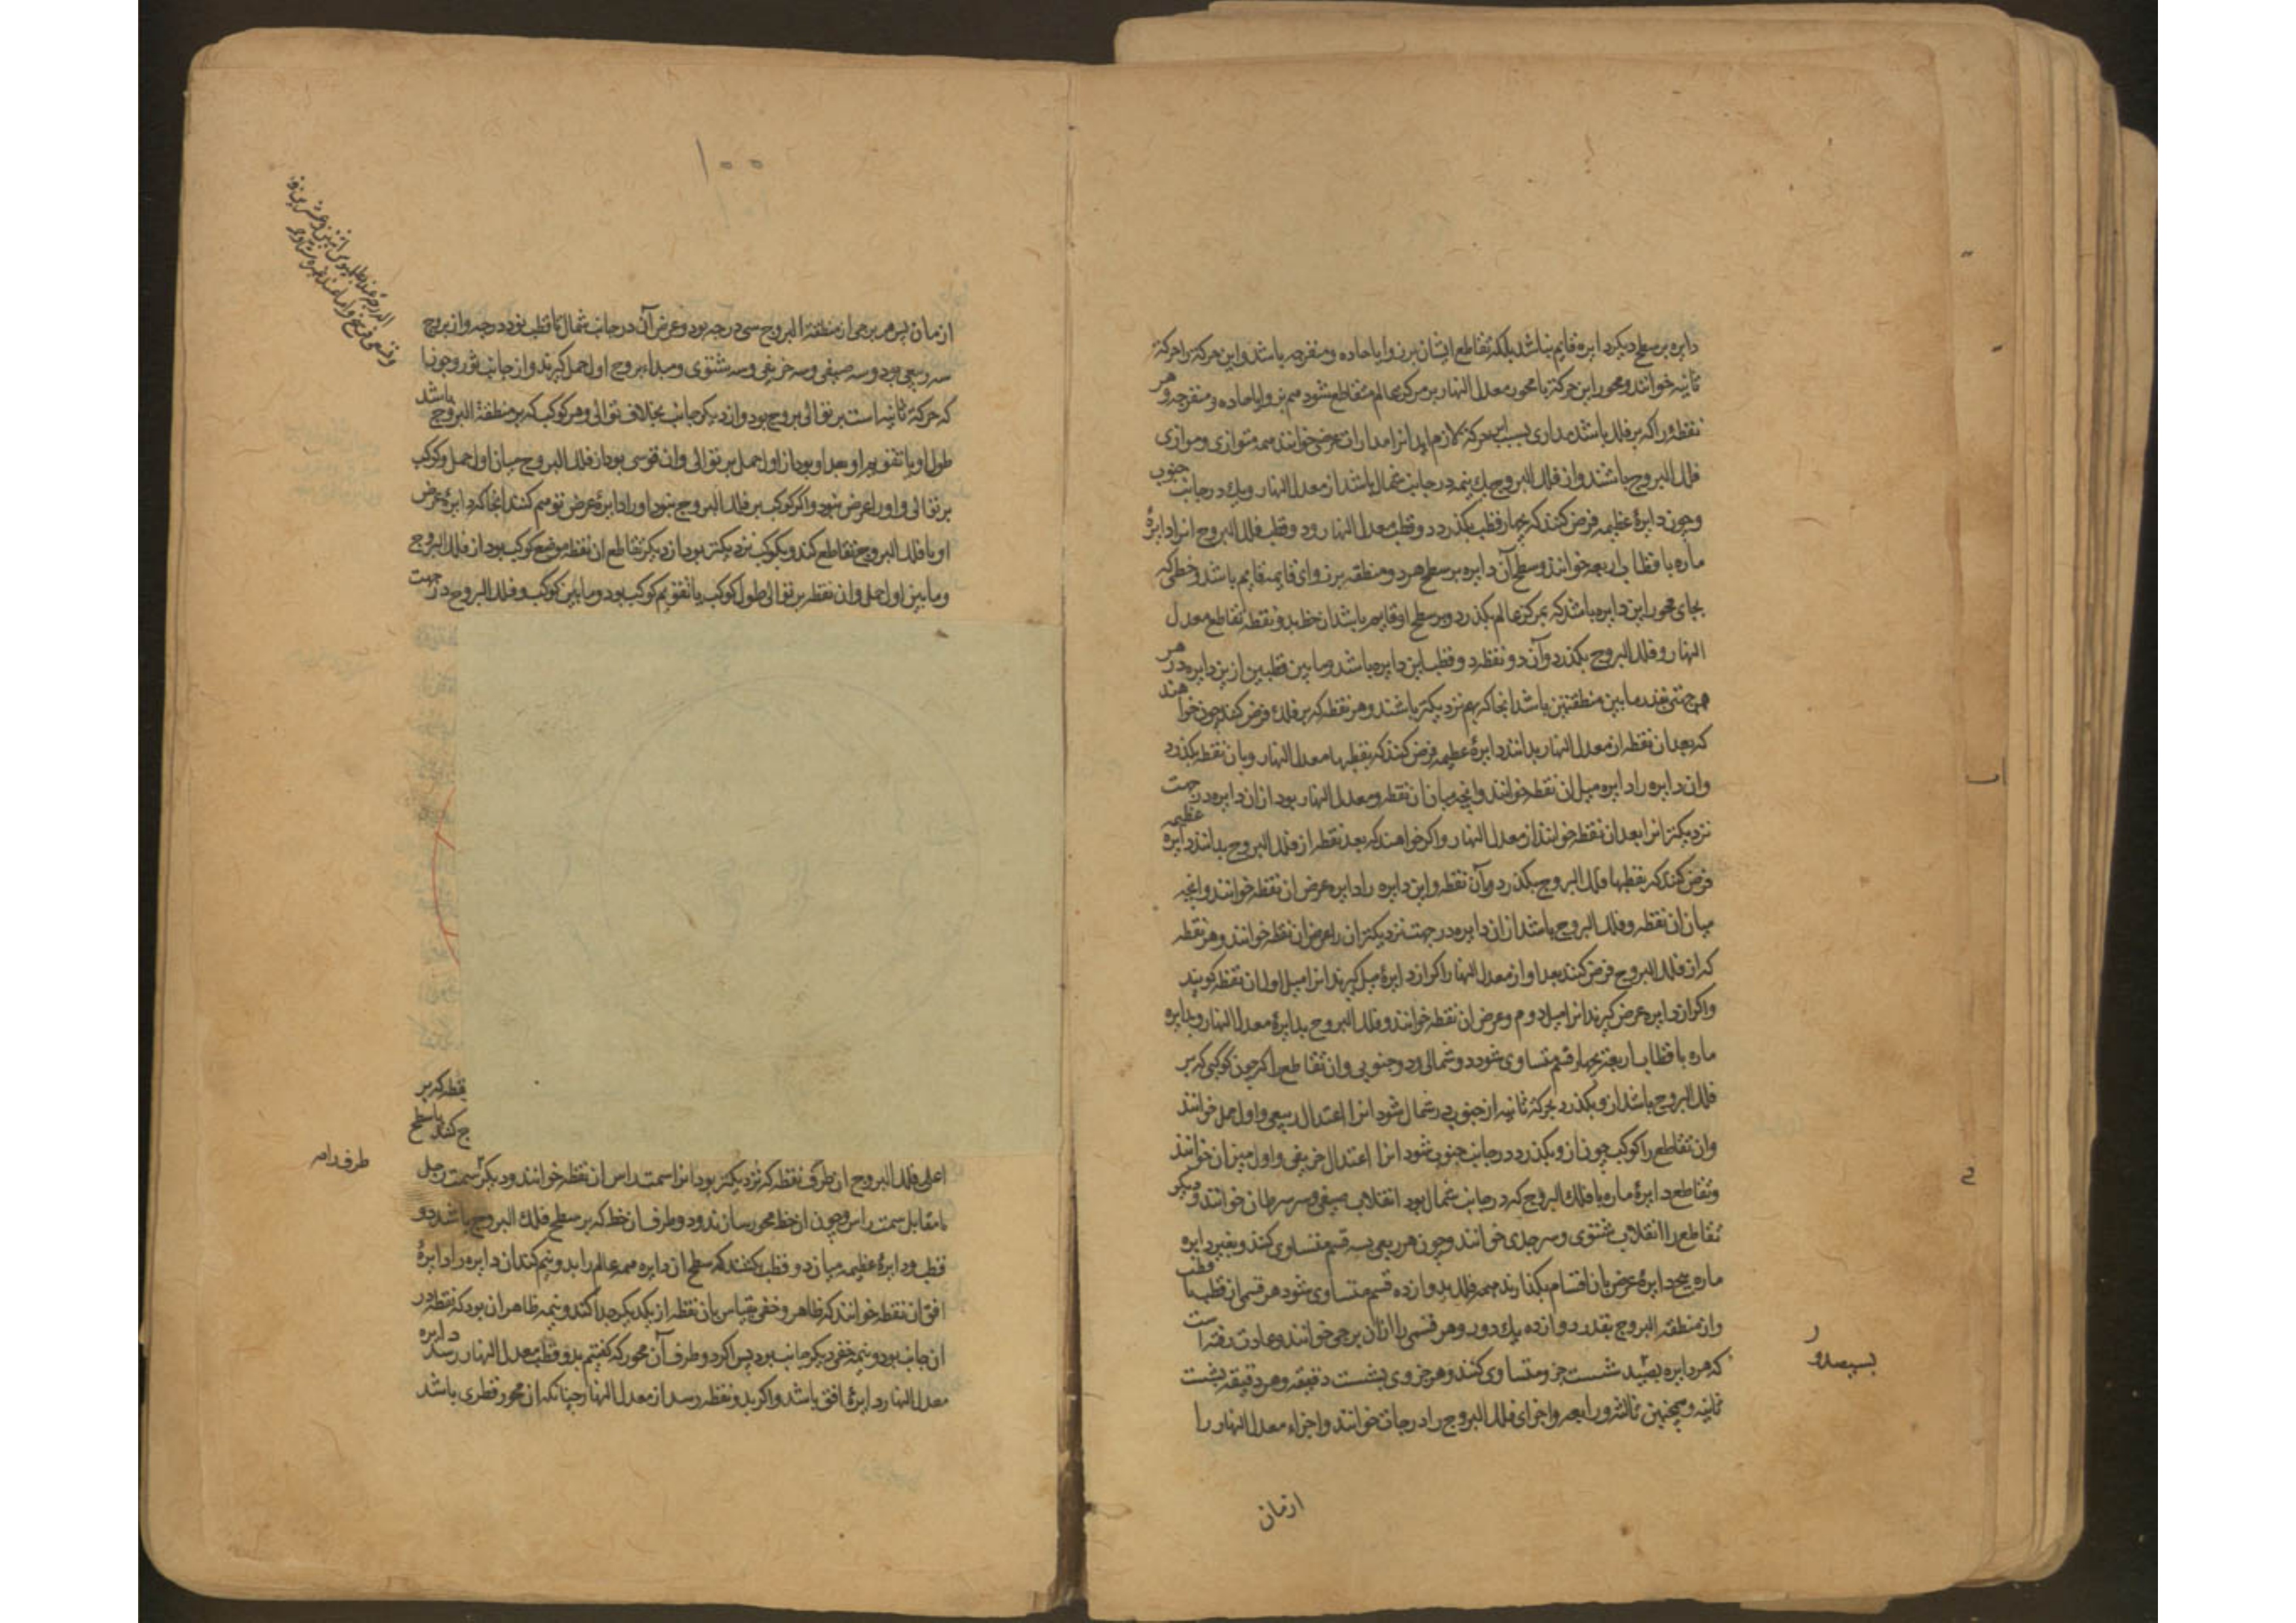 دایره بر سطح دیگر دایره قایم نباشد بلکه تقاطع ایشان بر زوایا حاده و منفرجه باشد و این حرکة را حرکة
ثانیه خوانند و محور این حرکة با محور معدل النهار بر مرکز عالم متقاطع شود هم بر زوایا حاده و منفرجه و هر
نقطه را که بر فلک باشد مداری بسبب این حرکة لازم اید انرا مدارات عرض خوانند همه متوازی و موازی
فلك البروج باشند و از فلك البروج یك نیمه در جانب شمال باشد از معدل النهار و یك در جانب جنوب
و چون دایرهٔ عظیمه فرض کنند که بچهار قطب بگذرد دو قطب معدل النهار و دو قطب فلك البروج انرا دایرهٔ
ماره باقطاب اربعه خوانند و سطح آن دایره بر سطح هر دو منطقه بر زوای قایمه قایم باشد و خطی که
بجای محور این دایره باشد که بمرکز عالم بگذرد و بر سطح او قایم باشد ان خط بدو نقطه تقاطع معدل
النهار و فلك البروج بگذرد و آن دو نقطه دو قطب این دایره باشد و ما بین قطبین ازین دایره در هر
جهتی بقدر ما بین منطقتین باشد انجا که بهم نزدیکتر باشند و هر نقطه که بر فلك فرض کنند چون خواهند
که بعد ان نقطه از معدل النهار بدانند دایرهٔ عظیمه فرض کنند که بقطبها معدل النهار و بان نقطه بگذرد
وان دایره را دایره میل ان نقطه خوانند و انچه میان ان نقطه و معدل النهار بود از ان دایره در جهت
نزدیکتر انرا بعد ان نقطه خوانند از معدل النهار و اکر خواهند که بعد نقطه از فلك البروج بدانند دایره عظیمه
فرض کنند که بقطبها فلك البروج بگذرد و بآن نقطه و این دایره را دایره عرض ان نقطه خوانند و انچه
میان ان نقطه و فلك البروج باشد از ان دایره در جهت نزدیکتر ان را عرض ان نقطه خوانند و هر نقطه
که از فلك البروج فرض کنند بعد او از معدل النهار را کر از دایرهٔ میل کیرند انرا میل اول ان نقطه کویند
و اکر از دایره عرض کیرند انرا میل دوم و عرض ان نقطه خوانند و فلك البروج بدایرهٔ معدل النهار و بدایره
ماره باقطاب اربعة بچهار قسم متساوی شود دو شمالی و دو جنوبی و ان تقاطع را کر چون کوکبی که بر
فلك البروج باشد از و بگذرد بحرکة ثانیه از جنوب در شمال شود انرا اعتدال ربیعی و اول حمل خوانند
وان تقاطع را کوکب چون از و بگذرد در جانب جنوب شود انرا اعتدال خریفی و اول میزان خوانند
و تقاطع دایرهٔ ماره با فلك البروج که در جانب شمال بود انقلاب صیفی و سر سرطان خوانند و دیگر
تقاطع را انقلاب شتوی و سر جدی خوانند و چون هر ربعی بسه قسم متساوی کنند و بغیر دایره
ماره پنج دایرهٔ عرض بان اقسام بگذارند همه فلك بدوازده قسم متساوی شود هر قسمی از قطب تا قطب
و از منطقه البروج بقدر دوازده یك دور و هر قسمی را ازان برجی خوانند و عادت رفته است
که هر دایره بسیصد شست جزو متساوی کنند و هر جزوی بشست دقیقه و هر دقیقه بشست
ثانیه و همچنین ثالثه و رابعه و اجزای فلك البروج را درجات خوانند و اجزاء معدل النهار را
بسیصد و
ازمان
۱۰۰
ازمان پس هر برجی از منطقة البروج سی درجه بود و عرض آن در جانب شمال تا قطب نود درجه و از بروج
سه ربیعی بود و سه صیفی و سه خریفی و سه شتوی و مبداء بروج اول حمل کیرند و از جانب ثور و جوزا
که حرکة ثانیه است بر توالی بروج بود و از دیگر جانب بخلاف توالی و هر کوکب که بر منطقة البروج باشد
طول او یا تقویم او بعد او بود از اول حمل بر توالی وان قوسی بود از فلك البروج میان اول حمل و کوکب
بر توالی و او را عرض نبود و اکر کوکب بر فلك البروج نبود او را دایرهٔ عرض توهم کنند انجا که دایرهٔ عرض
او با فلك البروج تقاطع کند و بکوکب نزدیکتر بود از دیگر تقاطع ان نقطه موضع کوکب بود از فلك البروج
و ما بین اول حمل وان نقطه بر توالی طول کوکب یا تقویم کوکب بود و ما بین کوکب و فلك البروج در جهت
نقطه که بر
ج کنند با سطح
اعلی فلك البروج ان طرف نقطه که نزدیکتر بود انرا سمت راس ان نقطه خوانند و دیگر سمت رجل
یا مقابل سمت راس و چون ان خط محور سازند و دو طرف ان خط که بر سطح فلك البروج باشد دو
قطب و دایرهٔ عظیمه میان دو قطب بکنند که سطح ان دایره همه عالم را بدو نیم کند ان دایره را دایرهٔ
افق ان نقطه خوانند که ظاهر و خفی بقیاس بان نقطه از یکدیگر جدا کند و نیمه ظاهر ان بود که نقطه در
ان جانب بود و نیمه خفی دیگر جانب بود پس اکر دو طرف آن محور که کفتیم بدو قطب معدل النهار رسد دایره
معدل النهار دایرهٔ افق باشد و اکر بدو نقطه رسد از معدل النهار چنانکه ان محور قطری باشد
طرف راس